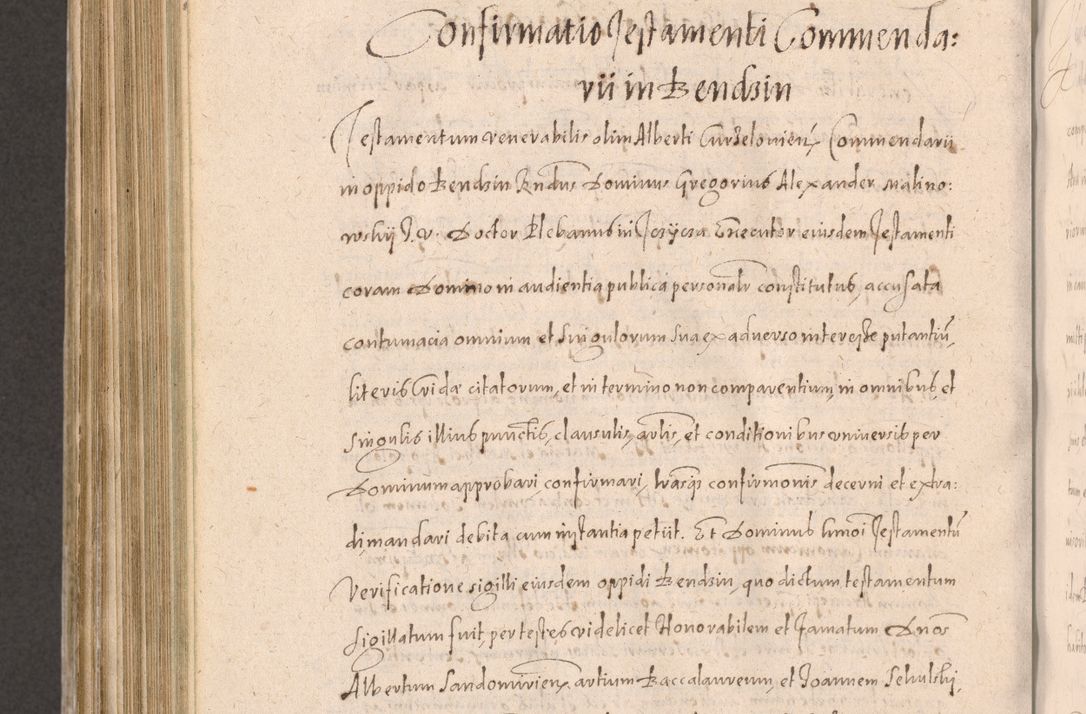 Confirmatio Testamenti Commenda:
rii in Bendzin
Testamentum venerabilis olim Alberti Curzelovien̄ Commendarii
in oppido Bendzin Rndus Dominus Gregorius Alexander Malino:
wskij J. v. Doctor Plebanus in Executor eiusdem Testamenti
coram Domino in audientia publica personalr constitutus, accusata
contumacia omnium et singulorum sua ex adverso interesse putantiū,
literis Cridæ citatorum, et in termino non comparentium, in omnibus et
singulis illius punctis, clausulis, arlis, et conditionibus universis per
Dominum approbari, confirmari, lrasqȝ confirmonis decerni et extra:
di mandari debita cum instantia petiit. Et Dominus hmoi Testamentū
Verificatione sigilli eiusdem oppidi Bendzin, quo dictum testamentum
sigillatum fuit, per testes videlicet Honorabilem et Famatum Dnos
Albertum Sandomirien artium Baccalaureum, et Joannem